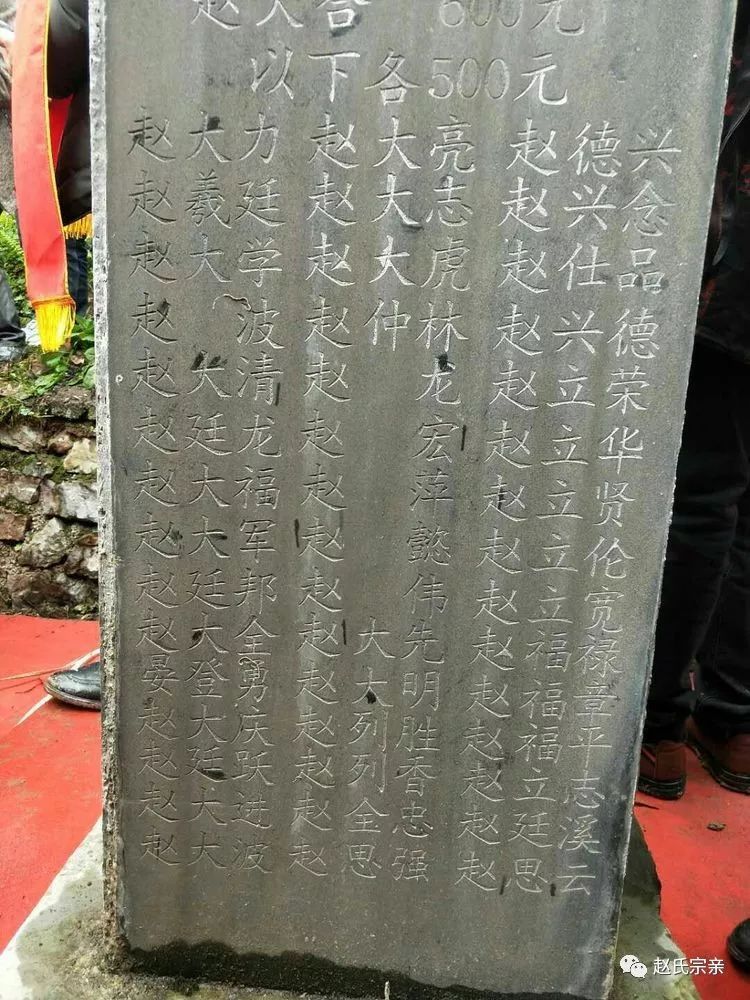 600元
以下各500元
赵大力 赵大亮 赵德兴
赵羲廷 赵大志 赵兴念
赵大学 赵大虎 赵仕品
赵波 赵仲林 赵兴德
赵大清 赵龙 赵立荣
赵廷龙 赵宏 赵立华
赵大福 赵萍 赵立贤
赵大军 赵懿 赵立伦
赵廷邦 赵伟 赵立宽
赵大全 赵大先 赵福禄
晏登勇 赵大明 赵福章
赵大庆 赵列胜 赵福平
赵廷跃 赵列香 赵立志
赵大进 赵全忠 赵廷溪
赵大波 赵思强 赵思云
赵氏宗亲